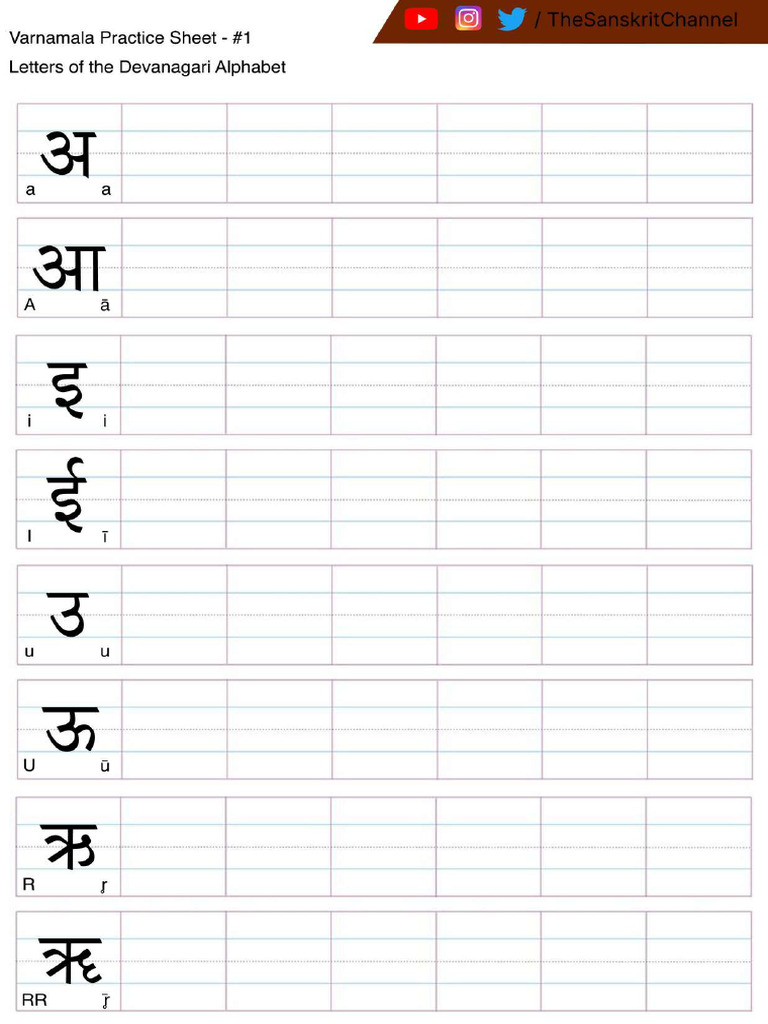 / TheSanskritChannel
Varnamala Practice Sheet - #1
Letters of the Devanagari Alphabet
अ
a a
आ
A ā
इ
i i
ई
I ī
उ
u u
ऊ
U ū
ऋ
R ṛ
ॠ
RR ṝ